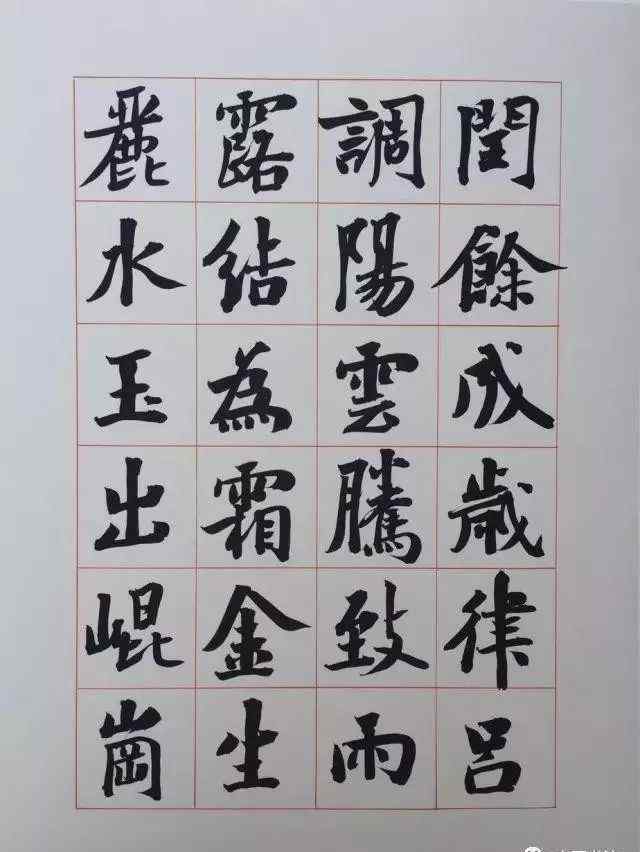 閏餘成歲律呂
調陽雲騰致雨
露結為霜金生
麗水玉出崐崗